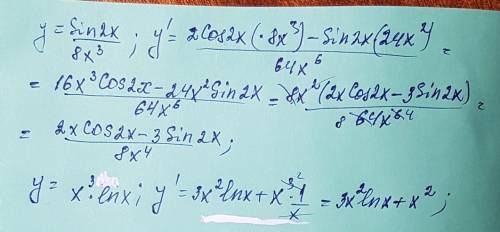 y = Sin2x / 8x³ ; y' = (2Cos2x(·8x³) − Sin2x(24x²)) / 64x⁶ =
= (16x³Cos2x − 24x²Sin2x) / 64x⁶ = 8x²(2xCos2x − 3Sin2x) / 8 64x⁶ ⁴ =
= (2xCos2x − 3Sin2x) / 8x⁴ ;
y = x³·lnx ; y' = 3x²lnx + x³ ² · 1/x = 3x²lnx + x² ;